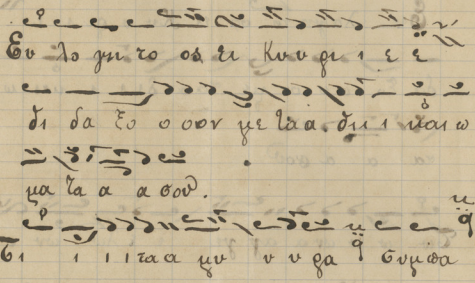 Ευ λο γη το οσ ει Κυ υ ρι ι ε ε
δι δα ξο ο ο ον με τα α δι ι ι και ω
μα τα α α α σου.
Τι ι ι ι τα α μυ υ υ ρα συμπα